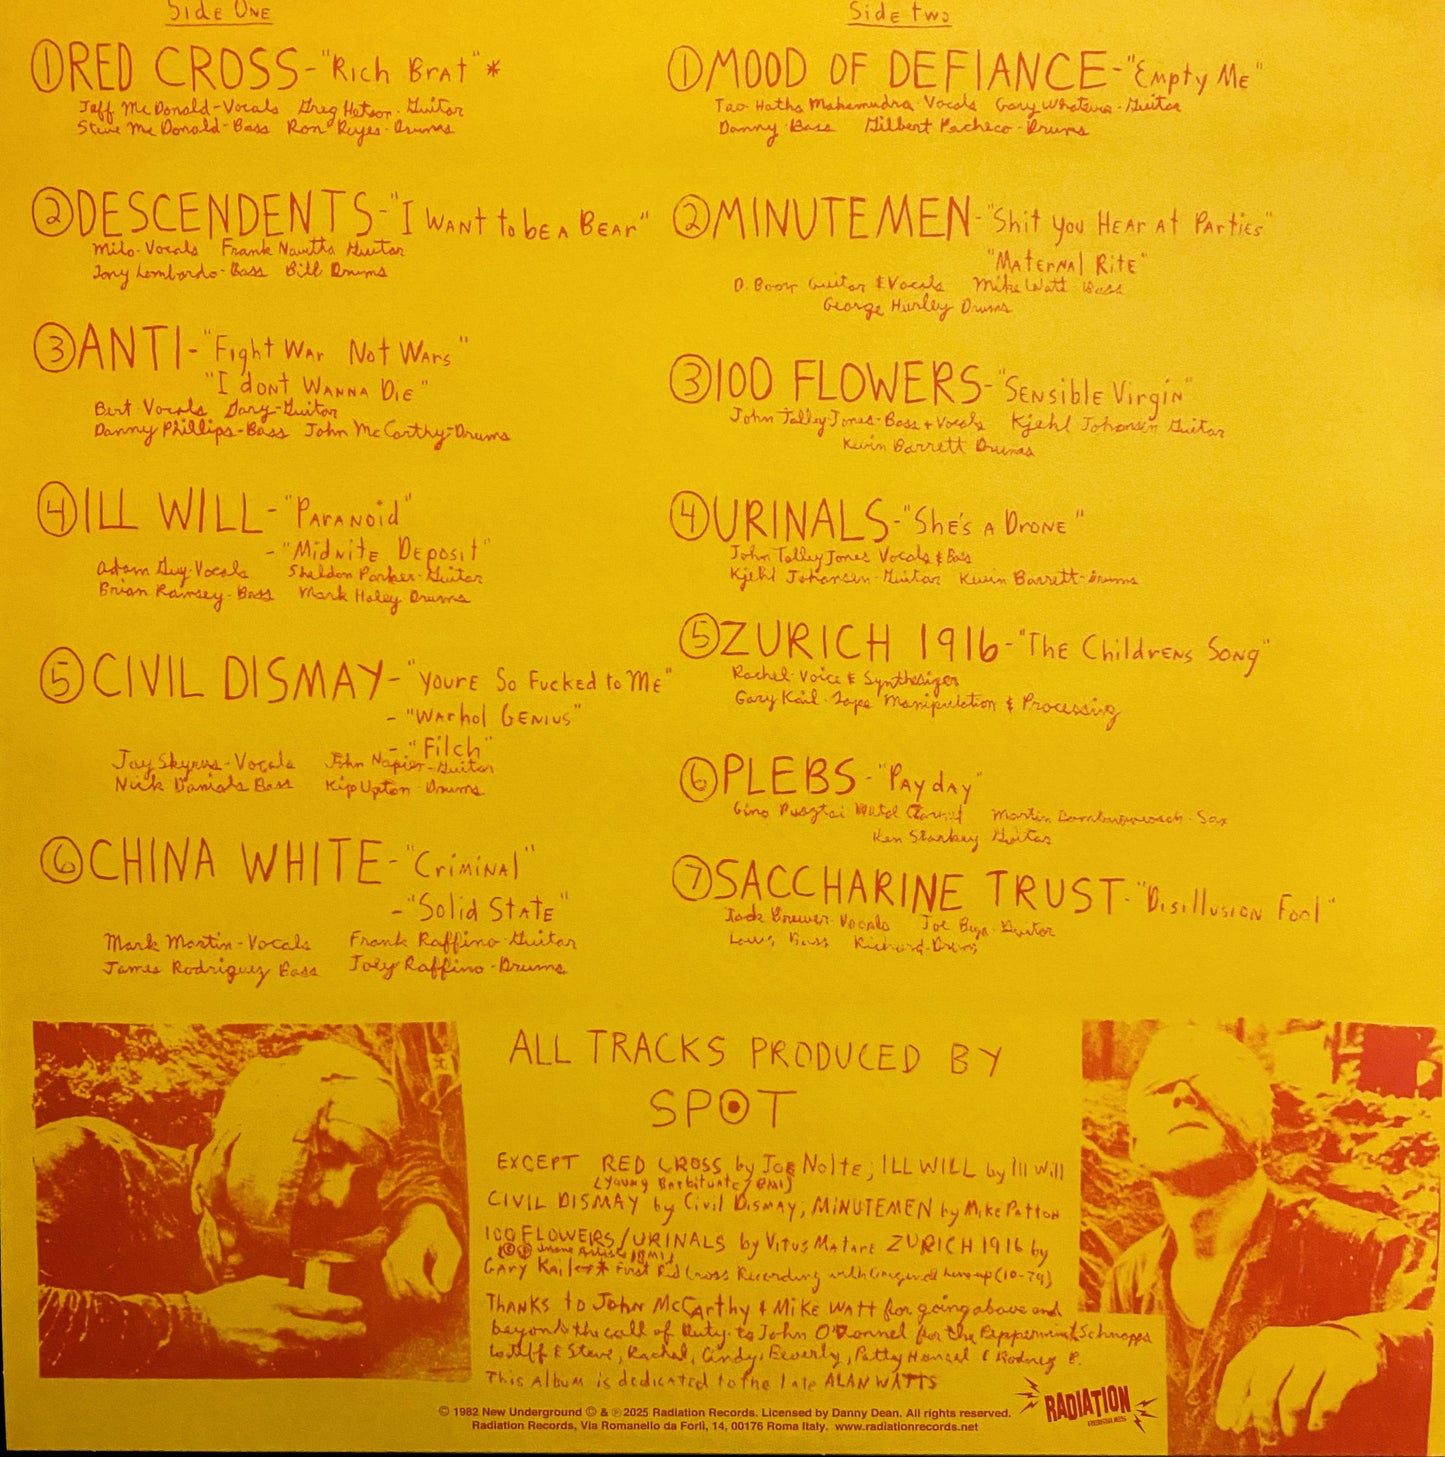 Side One
①RED CROSS-"Rich Brat"*
Jeff McDonald-Vocals Greg Hetson-Guitar
Steve McDonald-Bass Ron Reyes-Drums
②DESCENDENTS-"I WANT to bE A BEAr"
Milo-Vocals Frank Navetta Guitar
Tony Lombardo-Bass Bill Drums
③ANTI-"Fight WAr Not WArs"
"I dont WANNA DiE"
Bert Vocals Gary-Guitar
Danny Phillips-Bass John McCarthy-Drums
④ILL WILL-"PArANoid"
-"MidNitE DEposit"
Adam Guy-Vocals Sheldon Parker-Guitar
Brian Ramsey-Bass Mark Haley Drums
⑤CIVIL DISMAY-"YourE So Fucked to ME"
-"WArhol GENiUS"
-"Filch"
Jay Skyrus-Vocals John Napier-Guitar
Nick Daniels Bass Kip Upton-Drums
⑥CHINA WHITE-"CriMiNAl"
-"Solid StAtE"
Mark Martin-Vocals Frank Raffino-Guitar
James Rodriguez Bass Joey Raffino-Drums
SidE two
①MOOD OF DEFIANCE-"Empty ME"
Tao Hatha Mahamudra-Vocals Gary Whatever-Guitar
Danny Bass Gilbert Pacheco-Drums
②MINUTEMEN-"Shit you HEAr At PArtiEs"
"MAtErNAl RitE"
D. Boon Guitar & Vocals Mike Watt-Bass
George Hurley Drums
③100 FLOWERS-"SENsiblE VirgiN"
John Talley-Jones-Bass + Vocals Kjehl Johansen Guitar
Kevin Barrett Drums
④URINALS-"ShE's A DroNE"
John Talley Jones Vocals & Bass
Kjehl Johansen-Guitar Kevin Barrett-Drums
⑤ZURICH 1916-"ThE ChildrENs SoNg"
Rachel-Voice & Synthesizer
Gary Kail-Tape Manipulation & Processing
⑥PLEBS-"PAydAy"
Gino Pusztai Metal Clarinet Martin Sax
Ken Starkey Guitar
⑦SACCHARINE TRUST-"Disillusion Fool"
Jack Brewer-Vocals Joe Baiza-Guitar
Bass Richard-Drums
ALL TRACKS PRODUCED BY
SPOT
EXCEPT RED CROSS by JoE Nolte, ILL WILL by Ill Will
(Young Barbituate/BMI)
CIVIL DISMAY by Civil DismAy, MINUTEMEN by MikE PAttoN
100 FLOWERS/URINALS by Vitus MAtArE ZURICH 1916 by
GAry KAil * First Red Cross Recording with original lineup (10-79)
THANKS to JohN McCArthy & MikE WAtt for going above and
beyond the call of Duty to John O'Donnel for the Peppermint Schnapps
to Jeff & Steve, Rachel, Cindy, Beverly, Patty Hansel & Rodney B.
This Album is dedicated to the late ALAN WATTS
© 1982 New Underground © & ℗ 2025 Radiation Records. Licensed by Danny Dean. All rights reserved.
Radiation Records, Via Romanello da Forlì, 14, 00176 Roma Italy. www.radiationrecords.net
RADIATION